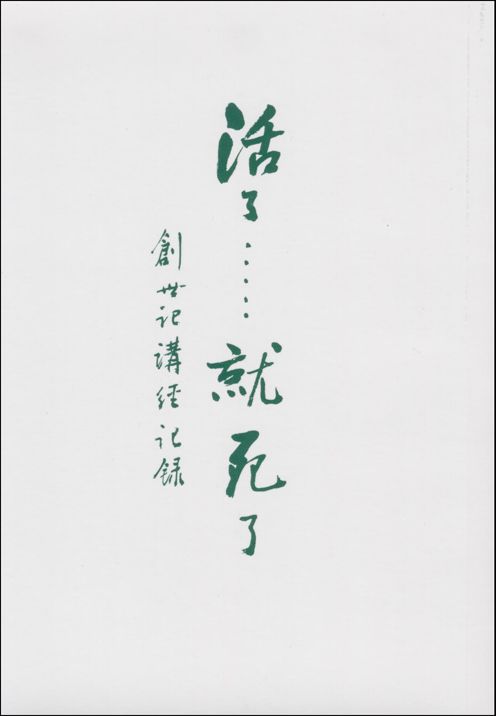 活了·····就死了
創世記講經記録